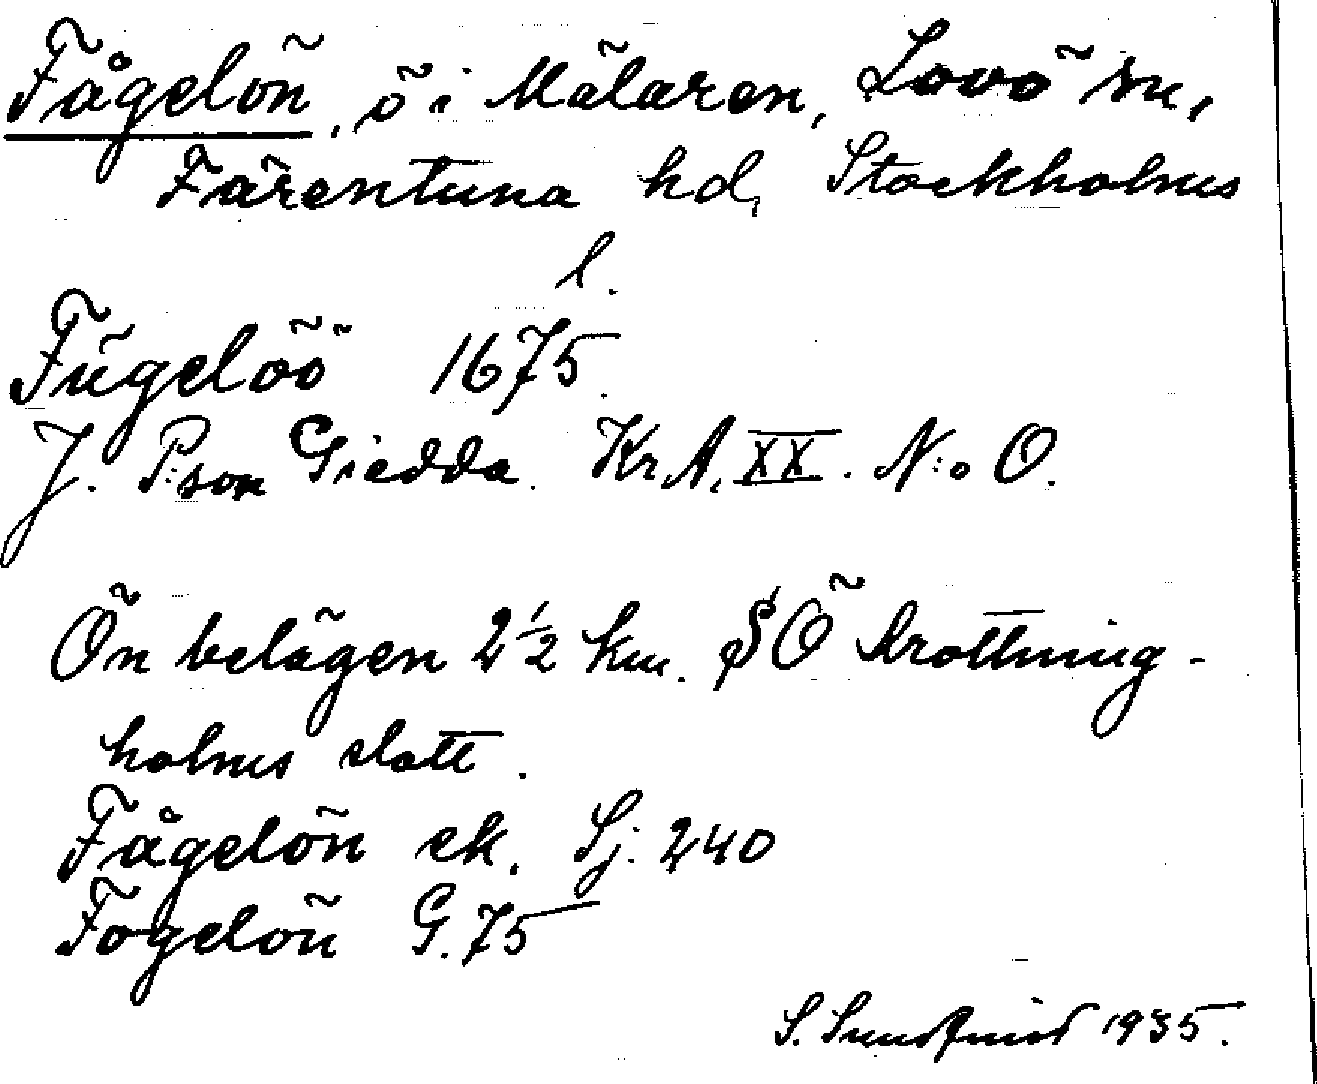 Fågelön, ö i Mälaren, Lovö sn,
Färentuna hd, Stockholms
l.
Fügelöö 1675.
J. P:son Giedda. Kr.A. XX. N:o O.
Ön belägen 2 1/2 km. SÖ Drottning-
holms slott.
Fågelön ek. Sj. 240
Fogelön G. 75
S. Sundqvist 1935.